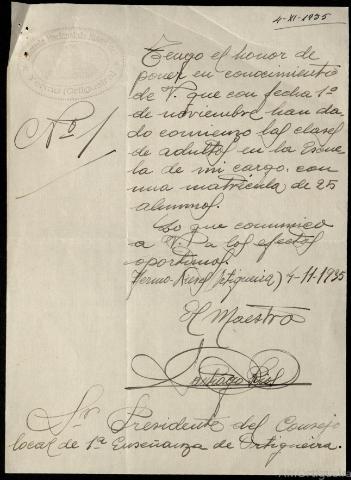 4-XI-1935
Nº 1
Tengo el honor de
poner en conocimiento
de V. que con fecha 1º
de noviembre han da-
do comienzo las clases
de adultos en la Escue-
la de mi cargo, con
una matrícula de 25
alumnos.
Lo que comunico
a V. a los efectos
oportunos.
(Ortigueira) 4-11-1935
El Maestro
Santiago
Sr. Presidente del Consejo
local de 1ª Enseñanza de Ortigueira.